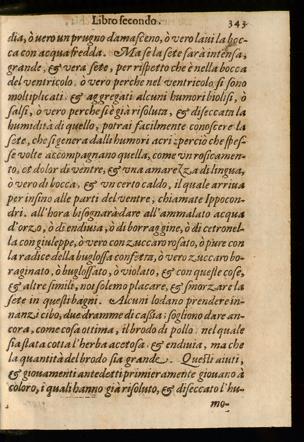 Libro secondo.
343
dia, ò vero un prugno damasceno, ò vero lavi la boc-
ca con acqua fredda. Ma se la sete sarà intensa,
grande, & vera sete, per rispetto che è nella bocca
del ventricolo, ò vero perche nel ventricolo si sono
moltiplicati & aggregati alcuni humori biliosi, ò
salsi, ò vero perche si è già risoluta, & diseccata la
humidità di quello, potrai facilmente conoscere la
sete, che si genera dalli humori acri: perciò che spes-
se volte accompagnano quella, come un rosicamen-
to, & dolor di ventre, & una amarezza di lingua,
ò vero di bocca, & un certo caldo, il quale arriva
per insino alle parti del ventre, chiamate Ippocon-
dri. all'hora bisognarà dare all'ammalato acqua
d'orzo, ò di endivia, ò di borraggine, ò di cetronel-
la con giuleppe, ò vero con zuccaro rosato, ò pure con
la radice della buglossa confetta, ò vero zuccaro bo-
raginato, ò buglossato, ò violato, & con queste cose,
& altre simili, noi solemo placare, & smorzare la
sete in questi bagni. Alcuni lodano prendere in-
nanzi cibo, due dramme di cassia: sogliono dare an-
cora, come cosa ottima, il brodo di pollo, nel quale
sia stata cotta l'herba acetosa, & endivia, ma che
la quantità del brodo sia grande. Questi aiuti,
& giovamenti antedetti primieramente giovano à
coloro, i quali hanno già risoluto, & diseccato l'hu-
mo-